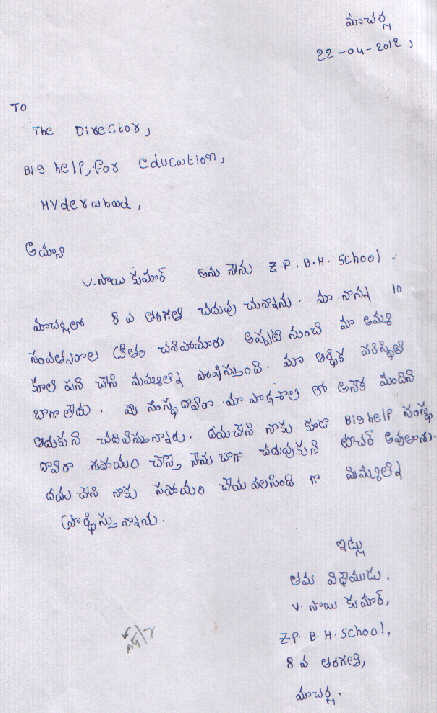 మాచర్ల
22-04-2012,
TO
The Director,
Big help, for Education,
Hyderabad,
అయ్యా
V. సాయి కుమార్ అను నేను Z.P.B.H. School.
మాచర్లలో 8 వ తరగతి చదువు చున్నాను. మా నాన్న 10
సంవత్సరాల క్రితం చనిపోయారు అప్పటి నుంచి మా అమ్మ
కూలి పని చేసి మమ్మల్ని పోషిస్తుంది. మా ఆర్థిక పరిస్థితి
బాగా లేదు. మీ సంస్థ ద్వారా మా పాఠశాల లో అనేక మందిని
ఆదుకుని చదివిస్తున్నారు. దయచేసి నాకు కూడా Bighelp సంస్థ
ద్వారా సహాయం చేస్తే నేను బాగా చదువుకుని టీచర్ అవుతాను.
దయ చేసి నాకు సహాయం చేయ వలసింది గా మిమ్మల్ని
ప్రార్థిస్తు న్నాను.
ఇట్లు
తమ విధేయుడు.
V. సాయి కుమార్,
Z.P. B. H. School,
8 వ తరగతి,
మాచర్ల.